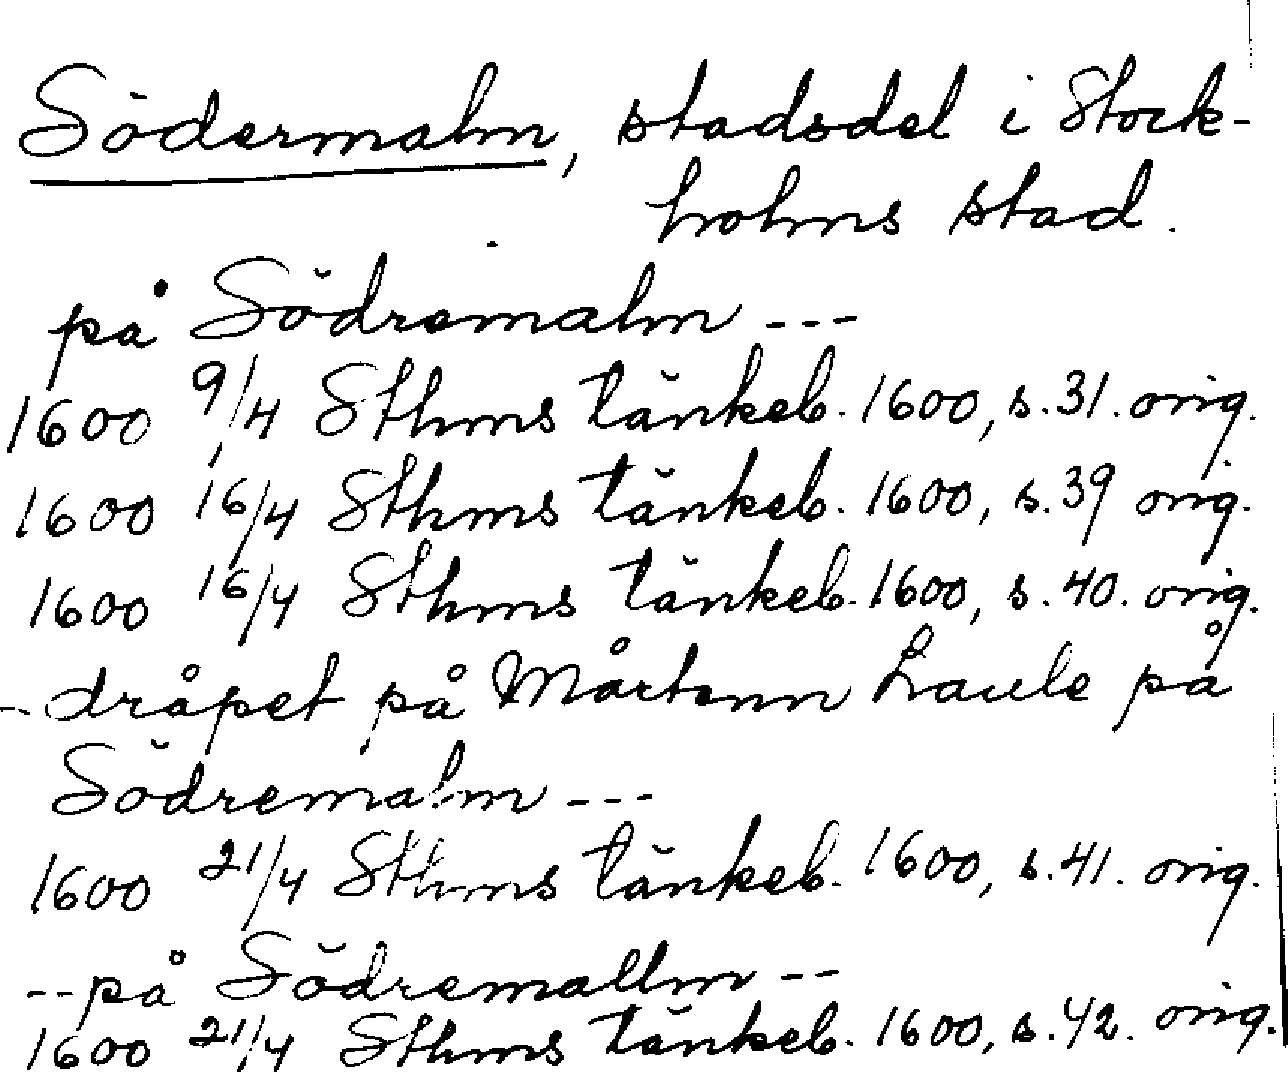 Södermalm, stadsdel i Stock-
holms stad.
på Södremalm ---
1600 9/4 Sthms tänkeb. 1600, s. 31. orig.
1600 16/4 Sthms tänkeb. 1600, s. 39 orig.
1600 16/4 Sthms tänkeb. 1600, s. 40. orig.
-- dråpet på Mårtenn Laule på
Södremalm ---
1600 21/4 Sthms tänkeb. 1600, s. 41. orig.
-- på Södremallm --
1600 21/4 Sthms tänkeb. 1600, s. 42. orig.